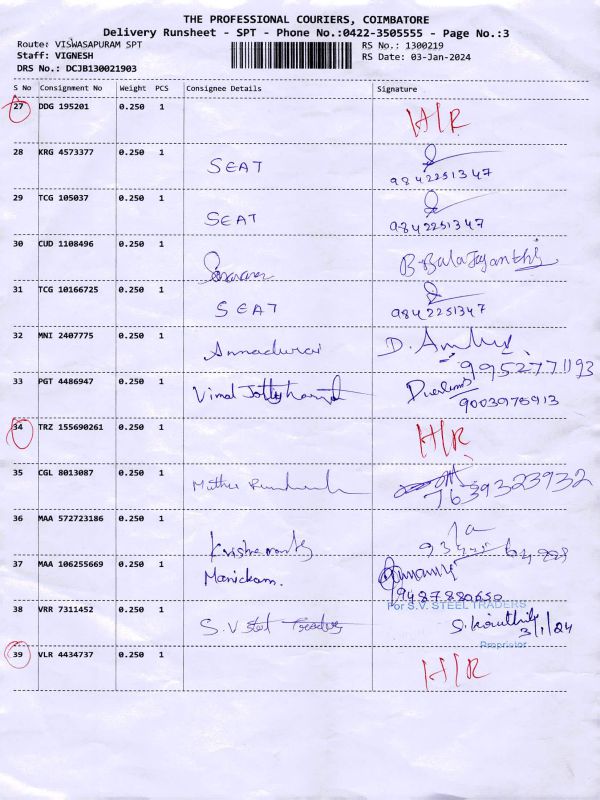 THE PROFESSIONAL COURIERS, COIMBATORE
Delivery Runsheet - SPT - Phone No.:0422-3505555 - Page No.:3
Route: VISWASAPURAM SPT RS No.: 1300219
Staff: VIGNESH RS Date: 03-Jan-2024
DRS No.: DCJB130021903
S No Consignment No Weight PCS Consignee Details Signature
27 DDG 195201 0.250 1 H/R
28 KRG 4573377 0.250 1 SEAT 9842251347
29 TCG 105037 0.250 1 SEAT 9842251347
30 CUD 1108496 0.250 1 B. Bala Jayanthi
31 TCG 10166725 0.250 1 SEAT 9842251347
32 MNI 2407775 0.250 1 Annadurai D. 9952771193
33 PGT 4486947 0.250 1 Vimal 9003975913
34 TRZ 155690261 0.250 1 H/R
35 CGL 8013087 0.250 1 7639323932
36 MAA 572723186 0.250 1
37 MAA 106255669 0.250 1 Manickam. 9487880650
38 VRR 7311452 0.250 1 S.V Steel Traders For S.V. STEEL TRADERS
3/1/24
Proprietor
39 VLR 4434737 0.250 1 H/R